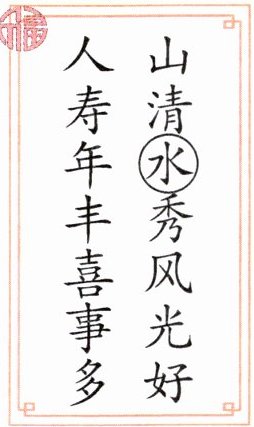 山清水秀风光好
人寿年丰喜事多
福